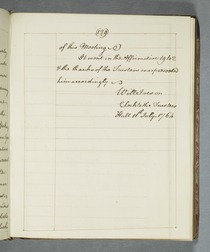 of this Meeting
It went in the Affirmative
& the thanks of the Trustees were presented
him accordingly
Clerk to the Trustees
Hull 10th July. 1764